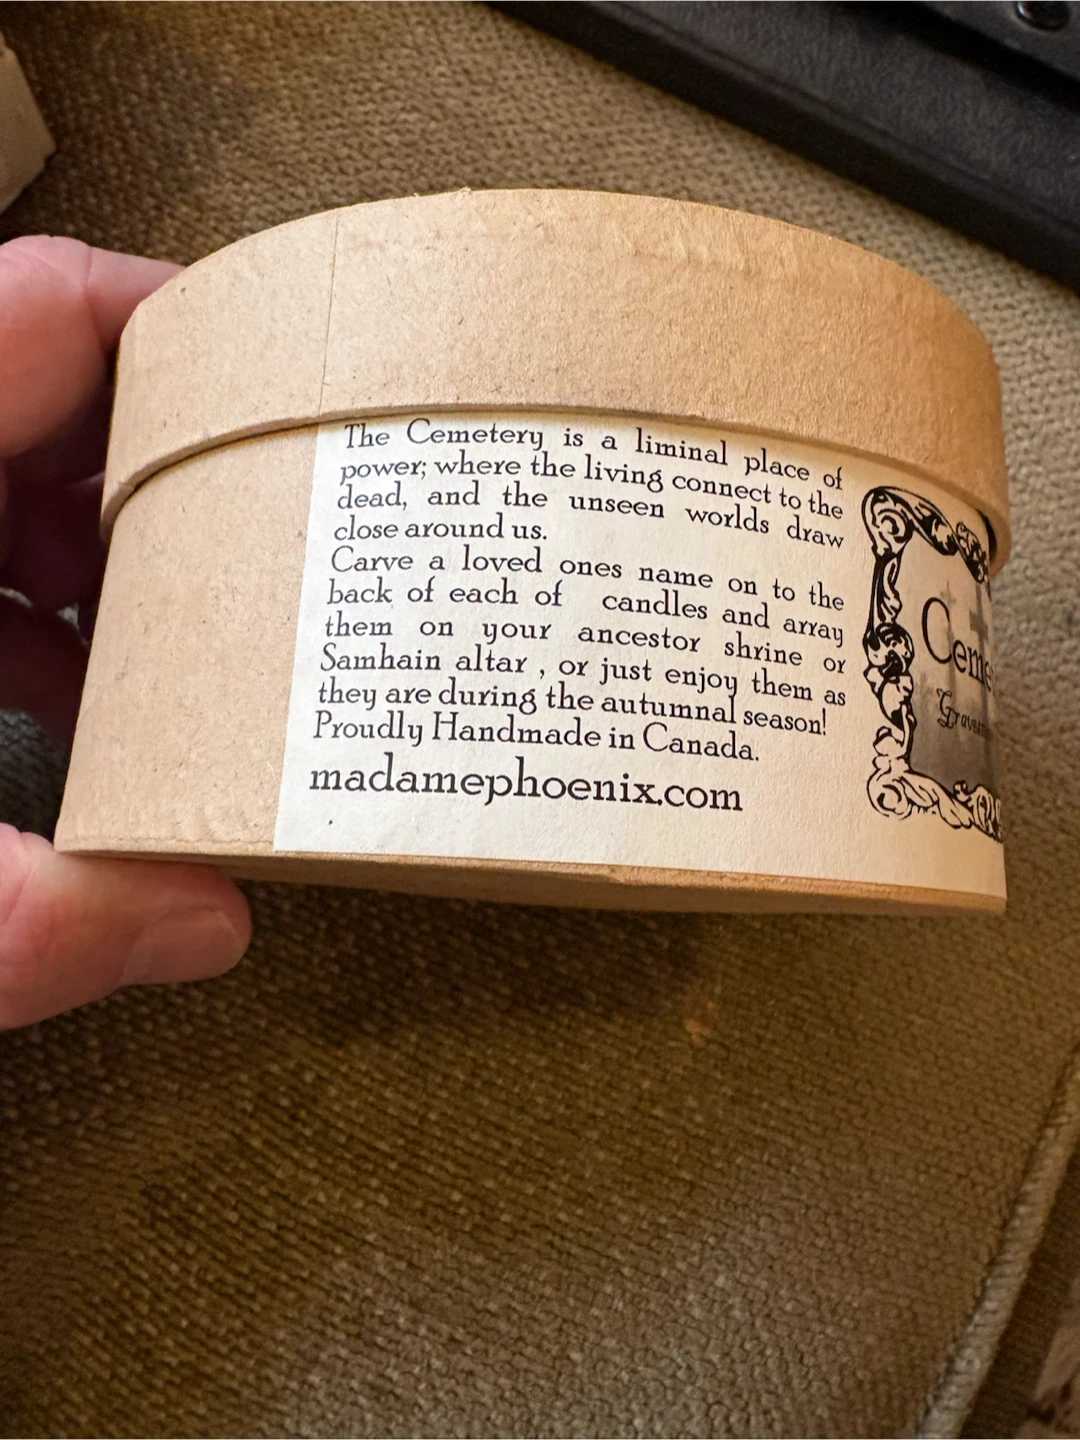 The Cemetery is a liminal place of
power; where the living connect to the
dead, and the unseen worlds draw
close around us.
Carve a loved ones name on to the
back of each of candles and array
them on your ancestor shrine or
Samhain altar , or just enjoy them as
they are during the autumnal season!
Proudly Handmade in Canada.
madamephoenix.com